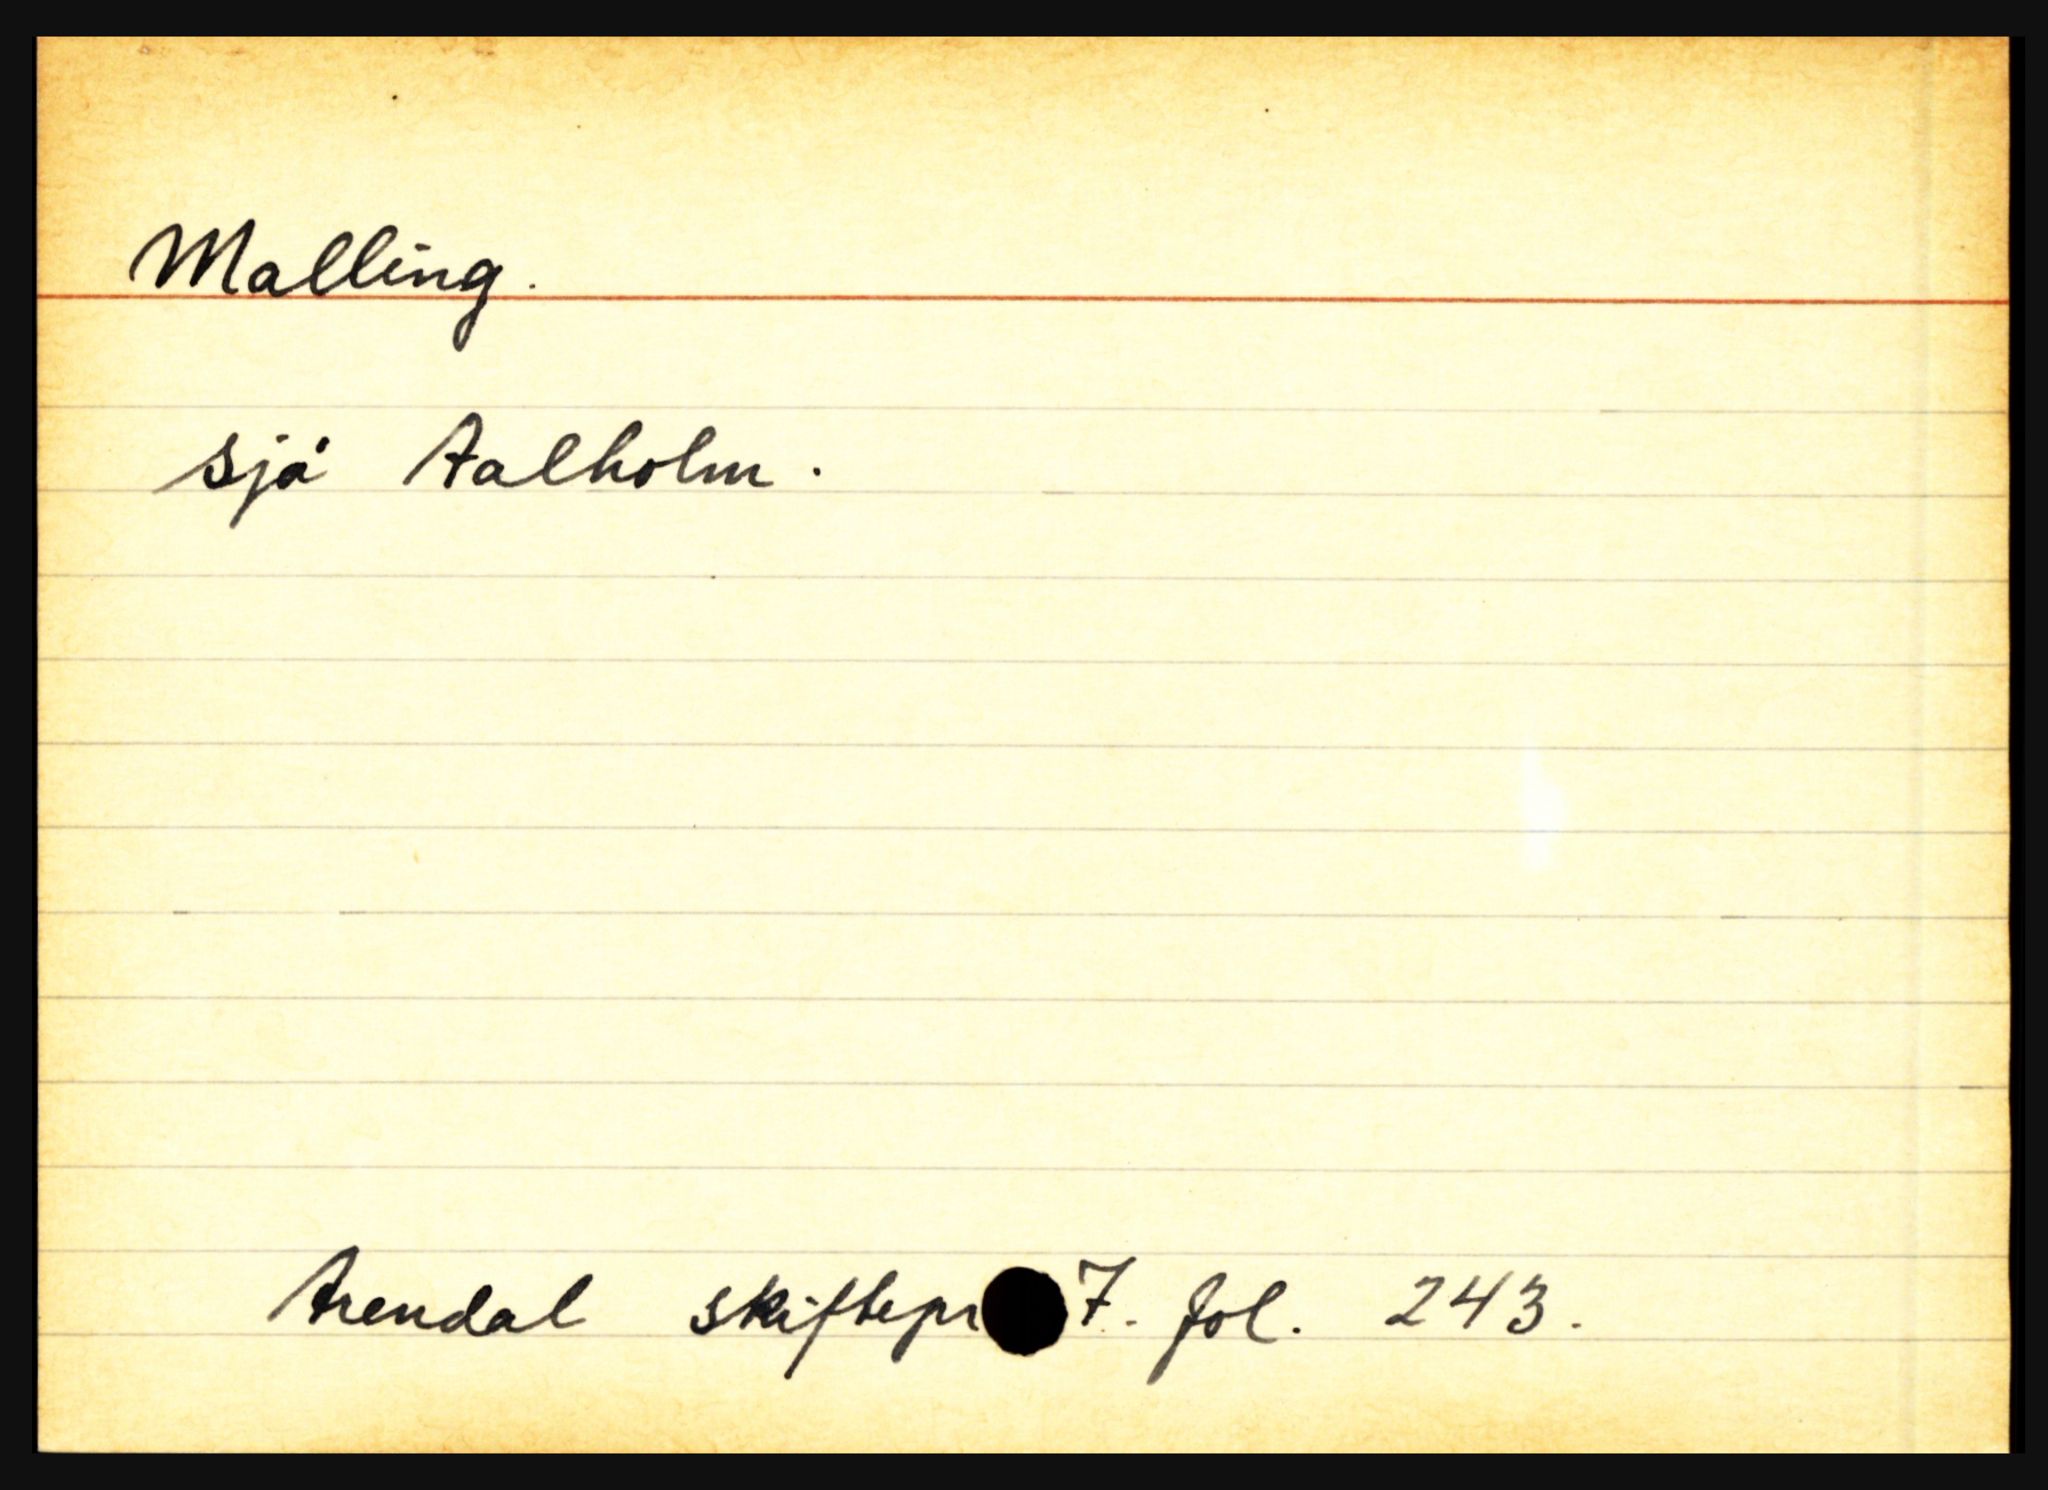 Malling.
sjå Aalholm.
Arendal skiftepr 7. fol. 243.